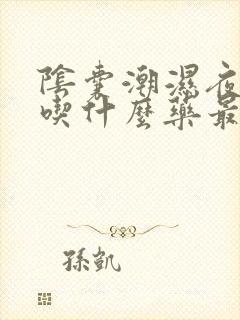 陰囊潮濕夜
喫什麼藥最
孫凱